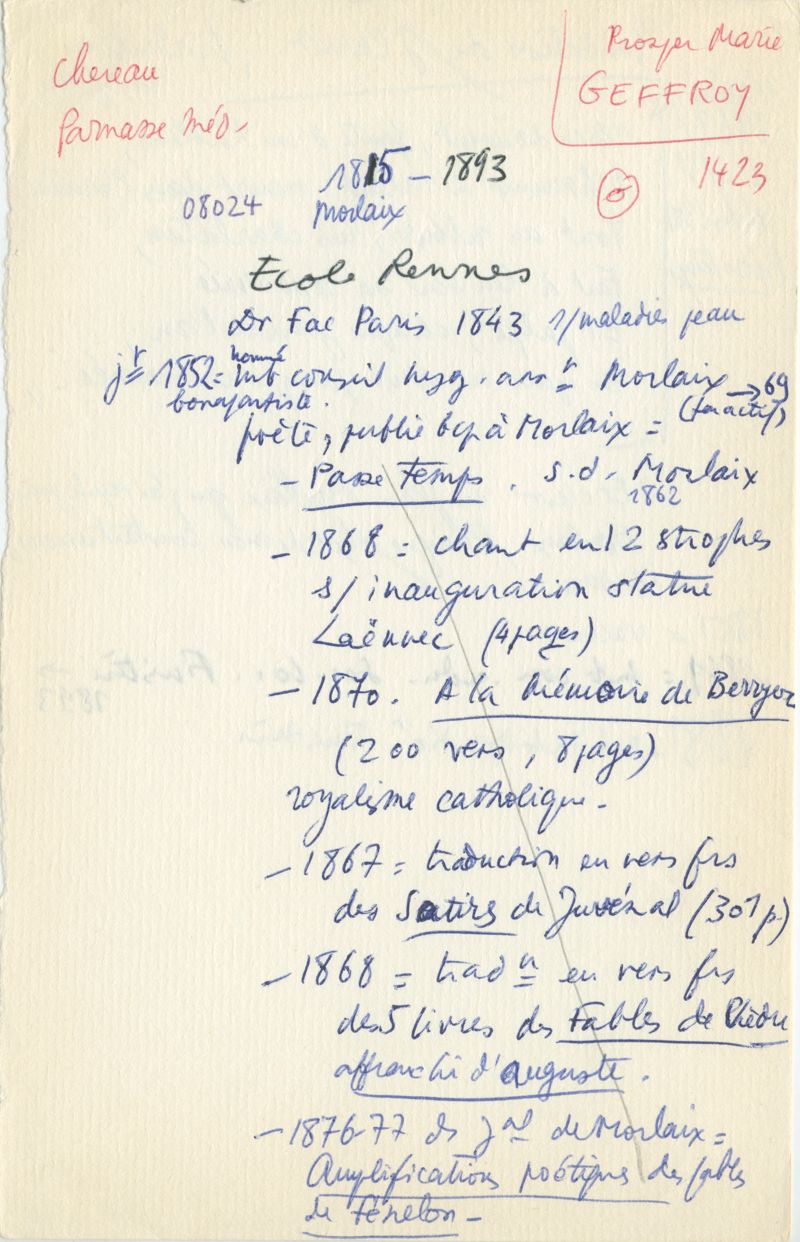 Chereau
Parnasse Méd-
Prosper Marie
GEFFROY
1423
1815 - 1893
08024
Morlaix
Ecole Rennes
Dr Fac Paris 1843 s/maladies peau
jr 1852 = nommé mb conseil hyg. arrt Morlaix → 69
bonapartiste. (très actif)
poète, publie bcp à Morlaix =
- Passe Temps. s.d - Morlaix
1862
- 1868 = chant en 12 strophes
s/ inauguration statue
Laënnec (4 pages)
- 1870. A la Mémoire de Berryer
(200 vers, 8 pages)
royalisme catholique -
- 1867 = traduction en vers frs
des Satires de Juvénal (301 p)
- 1868 = tradn en vers frs
des 5 livres des Fables de Phèdre
affranchi d'Auguste.
- 1876-77 ds Jal de Morlaix =
Amplifications poétiques des fables
de Fénelon -